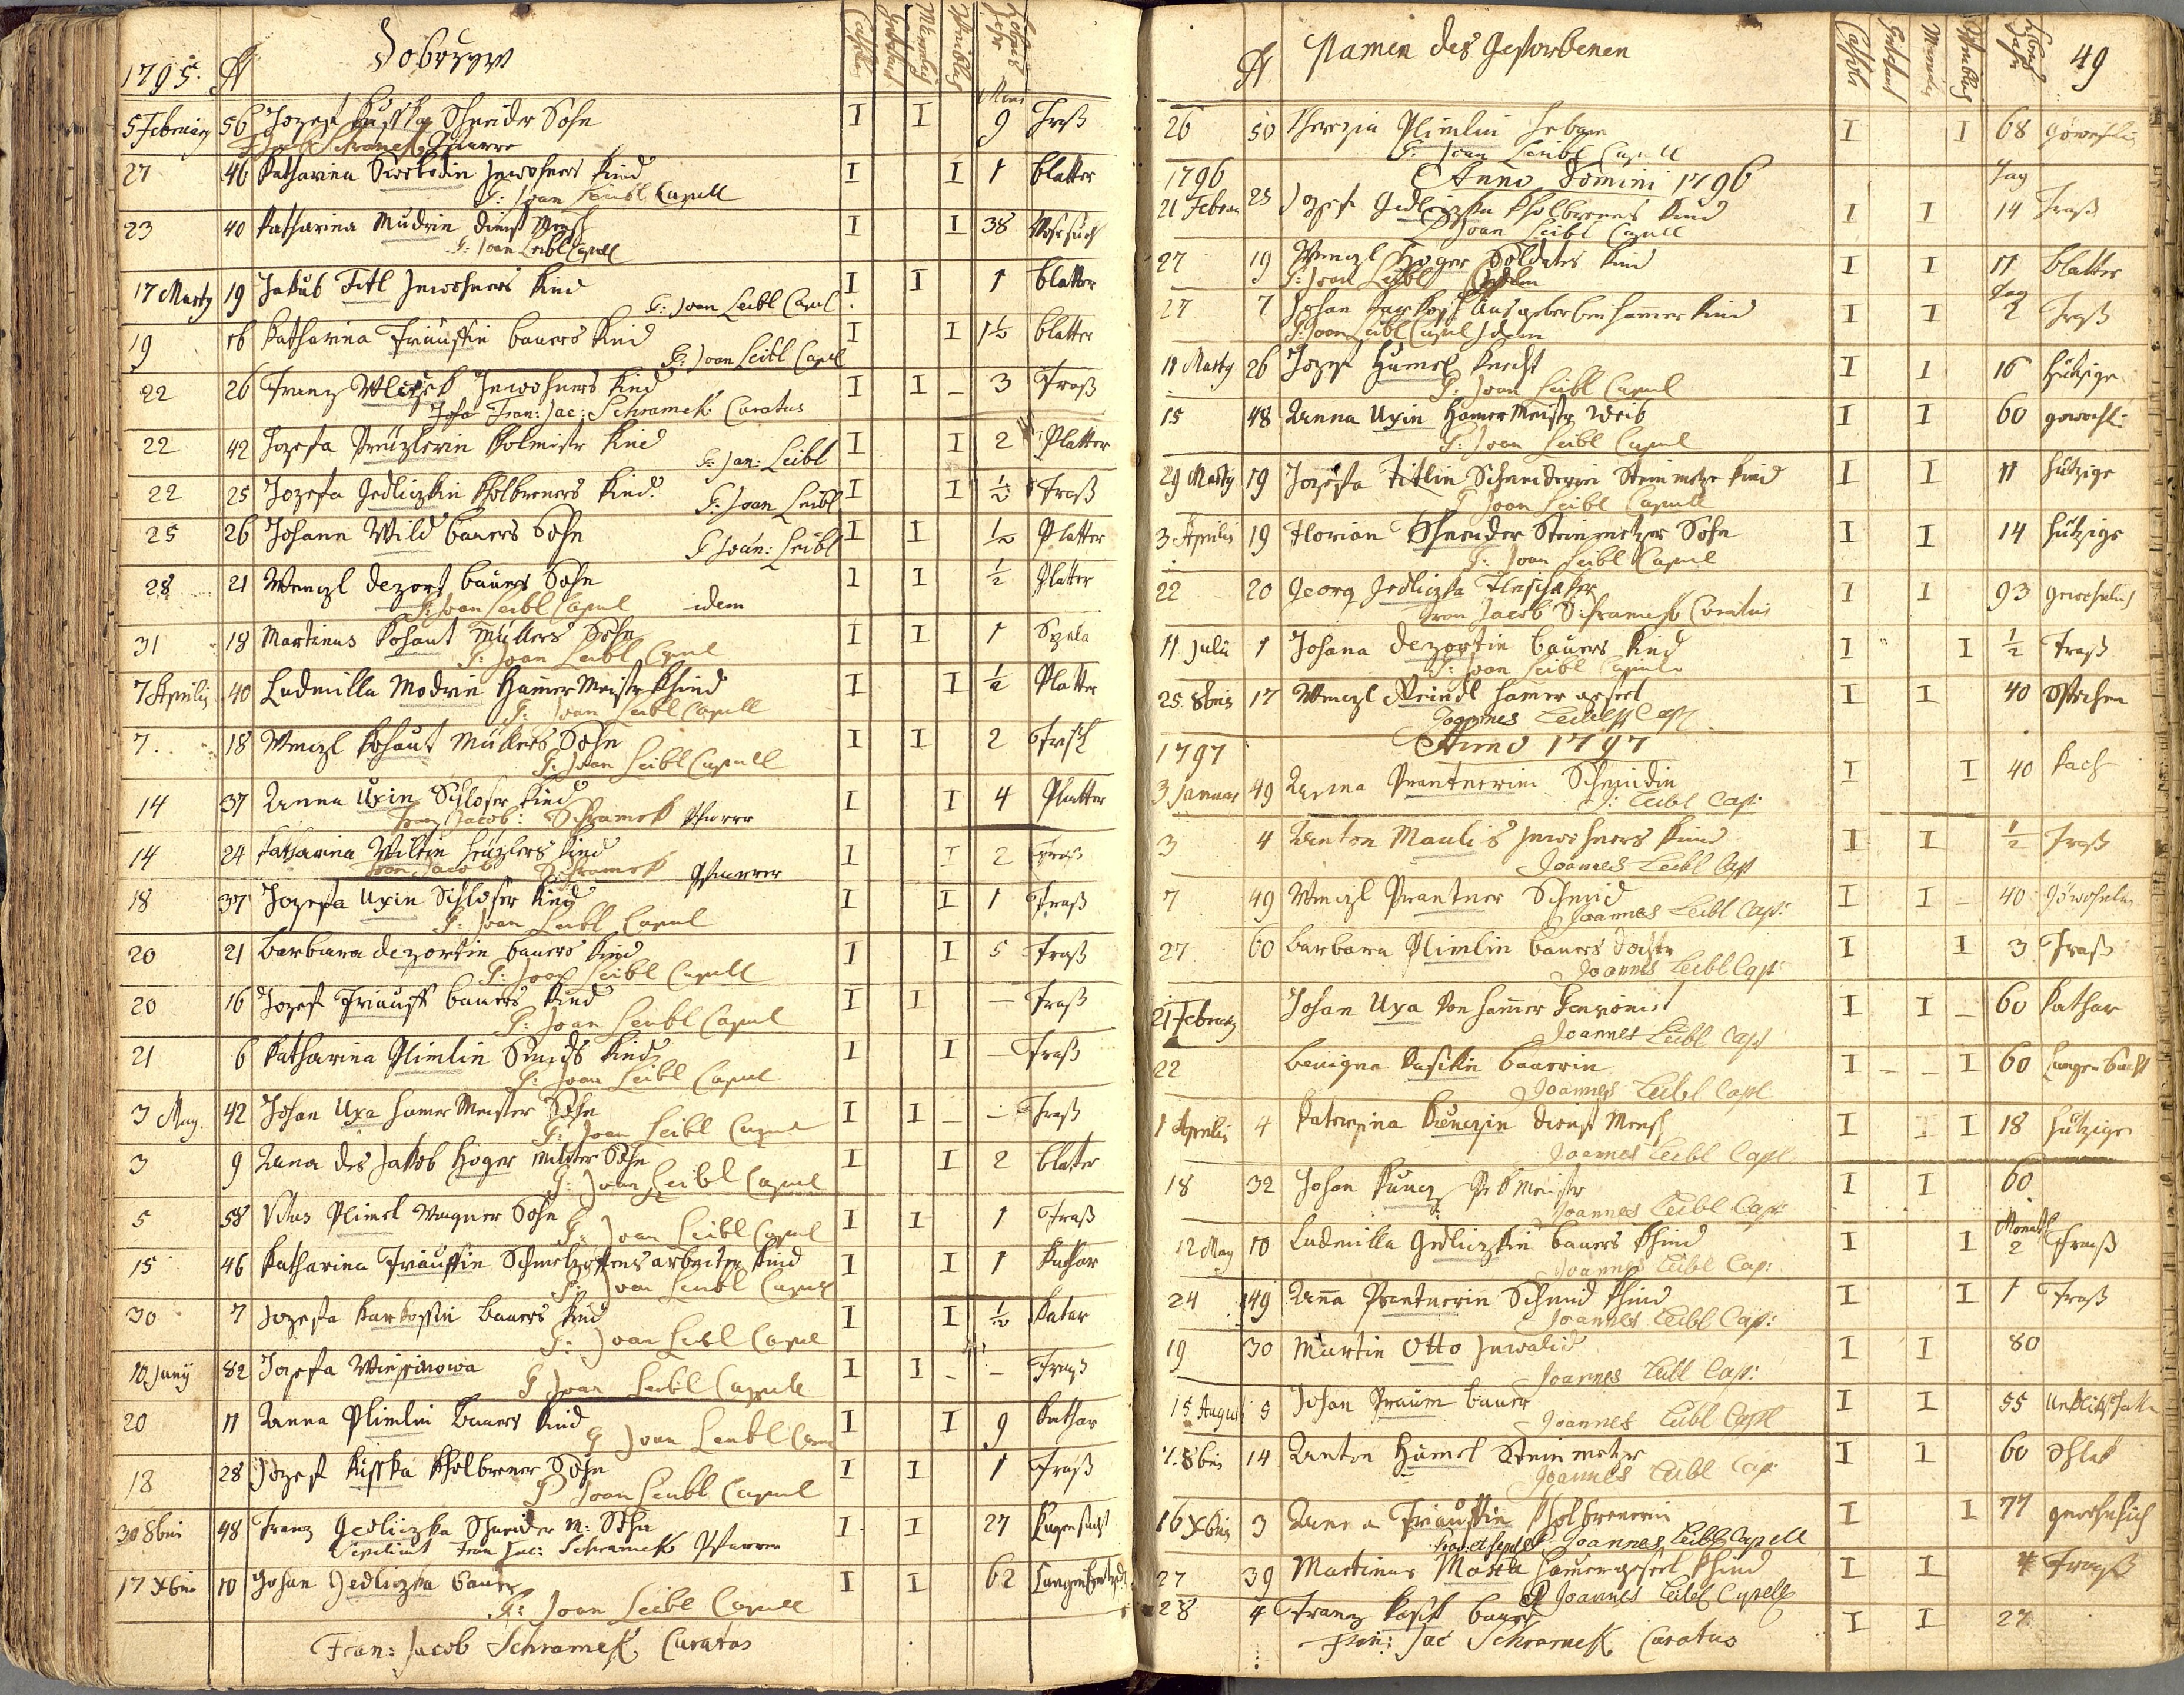 1795. N Dobrziw Catholi Männlich Weiblich Lebens Jahr
5 February 56 Jozef Kisska Schneider Sohn I I 9 Fraß
Schramek Pfarrer
27 46 Katharina Inwohners Kind I I 1 blatter
P: Joan Leibl Capell
23 40 Katharina Mudrin dienst Mensch I I 38
P: Joan Leibl Capell
17 Marty 19 Jakub Titl Inwohners Kind I I 1 blatter
P: Joan Leibl Capel
19 16 Katharina Friauffin bauers Kind I I 1½ blatter
P: Joan Leibl Capel
22 26 Franz Wlczek Inwohners Kind I I – 3 Fraß
Fran: Jac: Schramek Curatus
22 42 Jozefa Kind I I 2 Platter
P: Jan: Leibl
22 25 Jozefa Jedliczkin Kholbreners Kind I I ½ Fraß
P: Joan Leibl
25 26 Johann Wild bauers Sohn I I ½ Platter
P Joan: Leibl
28 21 Wenzl dezort bauers Sohn I I ½ Platter
P: Joan Leibl Capel idem
31 18 Martinus Kohaut Müllers Sohn I I 1
P: Joan Leibl Capel
7 Aprilis 40 Ludmilla Modrin Hamer Meister Khind I I ½ Platter
P: Joan Leibl Capell
7. 18 Wenzl Kohaut Müllers Sohn I I 2
P: Joan Leibl Capell
14 37 Anna Uxin Schloser Kind I I 4 Platter
Fran Jacob: Schramek Pfarrer
14 24 Katharina Wiltin Kind I I 2 Fraß
Fran Jacob Schramek Pfarrer
18 37 Jozefa Uxin Schloser Kind I I 1 Fraß
P: Joan Leibl Capel
20 21 Barbara dezortin bauers Kind I I 5 Fraß
P: Joan Leibl Capell
20 16 Jozef Friauff bauers Kind I I – Fraß
P: Joan Leibl Capel
21 6 Katharina Plimlin Kind I I – Fraß
P: Joan Leibl Capel
3 May. 42 Johan Uxa Hamer Meister Sohn I I – – Fraß
P: Joan Leibl Capel
3 9 Anna des Jakob Hoger Sohn I I 2 blatter
P: Joan Leibl Capel
5 58 Vitus Plimel Wagner Sohn I I 1 Fraß
P: Joan Leibl Capel
15 46 Katharina Friauffin Schmelzoffens arbeiter Kind I I 1 Kathar
P: Joan Leibl Capel
30 7 Jozefa Karkossin bauers Kind I I ½ Katar
P: Joan Leibl Capel
10 Juny 82 Jozefa I I – – Fraß
P Joan Leibl Capell
20 11 Anna Plimlin Bauers Kind I I 9 Kathar
P Joan Leibl
18 28 Jozef Kisska Kholbrener Sohn I I 1 Fraß
P Joan Leibl Capel
30 8bris 48 Franz Jedliczka Schneider M: Sohn I I 27
Fran Jac: Schramek Pfarrer
17 Xbris 10 Johan Jedliczka bauer I I 62
P: Joan Leibl Capell
Fran: Jacob Schramek Curatus
N Namen des Gestorbenen Catholi Weiblich 49
26 50 Therezia Plimlin I I 68
P: Joan Leibl Capell
1796 Anno Domini 1796
21 Februar 25 Jozef Jedliczka Kholbreners Kind I I Tag 14 Fraß
P Joan Leibl Capell
27 19 Wenzl Hoger Soldates Kind I I 11 Blatter
P: Joan Leibl
27 7 Johan Karkoss Ausgeber bei Hammer Kind I I Tag 2 Fraß
P: Joan Leibl Capel Idem
11 Marty 26 Jozef Humel Knecht I I 16 Hützige
P: Joan Leibl Capel
15 48 Anna Uxin Hamer Meister Weib I I 60
P: Joan Leibl Capel
29 Marty 19 Jozefa Titlin Steinmetze Kind I I 11 Hützige
P Joan Leibl Capell
3 Aprilis 19 Florian Schneider Steinmetzer Sohn I I 14 Hützige
P: Joan Leibl Capel
22 20 Georg Jedliczka I I 93 gewehnlich
Fran Jacob Schramek Curatus
11 Julii 1 Johana dezortin bauers Kind I I ½ Fraß
P: Joan Leibl Capell
25 8bris 17 Wenzl Reindl Hamer gesell I I 40
Joannes Leibl Cap
1797 Anno 1797
3 Januar 49 Anna Prantnerin Schmidin I I 40
P: Leibl Cap:
3 4 Anton Maulis Inwohners Kind I I ½ Fraß
Joannes Leibl Cap
7 49 Wenzl Prantner Schmid I I – 40
Joannes Leibl Cap:
27. 60 Barbara Plimlin bauers Tochter I I 3 Fraß
Joannes Leibl Cap:
21 February Johan Uxa von Hamer Pensionist I I – 60 Kathar
Joannes Leibl Cap
22 Benigna Kasikin Bauerin I – – I 60 Lungensucht
Joannes Leibl Capl
1 Aprilis 4 Katerzina Kunczin dienst Mensch I I I 18 Hützige
Joannes Leibl Capl
18 32 Johan Kuncz Meister I I 60
Joannes Leibl Cap:
12 May 10 Ludmilla Jedliczkin bauers Khind I I Monath 2 Fraß
Joannes Leibl Cap:
24 49 Anna Prantnerin Schmid Khind I I 1 Fraß
Joannes Leibl Cap:
19 30 Martin Otto Inwalid I I 80
Joannes Leibl Cap:
15 August 5 Johan Praum bauer I I 55
Joannes Leibl Capl
8bris 14 Anton Humel Steinmetzer I I 60
Joannes Leibl Cap
16 Xbris 3 Anna Friauffin Kholbrenerin I I 77 gewehnlich
Joannes Leibl Capell
27 39 Martinus Maska Hamergesell Khind I I 4 Fraß
P Joannes Leibl Capell
28 4 Franz Kasik bauer I I 27
Fran: Jac Schramek Curatus